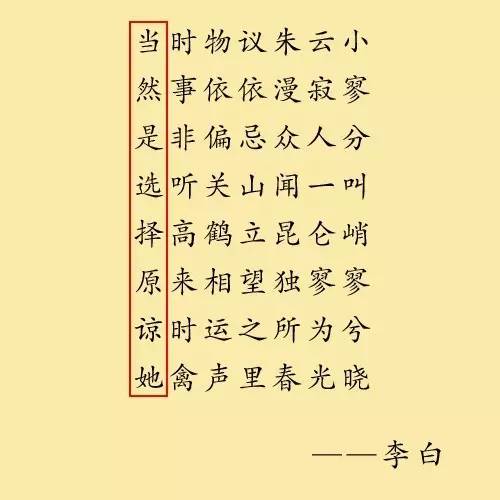 当时物议朱云小
然事依依漫寂寥
是非偏忌众人分
选听关山闻一叫
择高鹤立昆仑峭
原来相望独寥寥
谅时运之所为兮
她禽声里春光晓
——李白